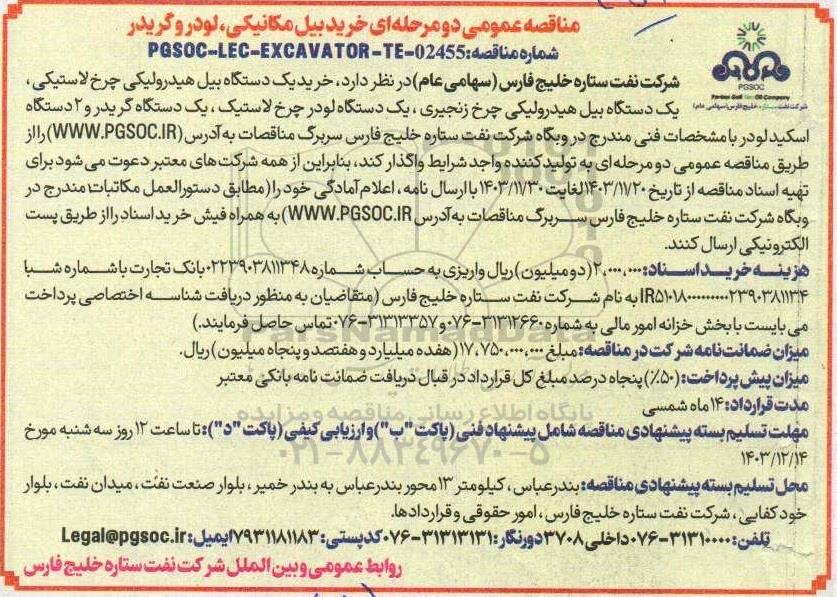 مناقصه عمومی دو مرحله‌ای خرید بیل مکانیکی، لودر و گریدر
شماره مناقصه: PGSOC-LEC-EXCAVATOR-TE-02455
PGSOC
Persian Gulf Star Oil Company
شرکت نفت ستاره خلیج فارس (سهامی عام)
شرکت نفت ستاره خلیج فارس (سهامی عام) در نظر دارد، خرید یک دستگاه بیل هیدرولیکی چرخ لاستیکی،
یک دستگاه بیل هیدرولیکی چرخ زنجیری، یک دستگاه لودر چرخ لاستیک، یک دستگاه گریدر و ۲ دستگاه
اسکید لودر با مشخصات فنی مندرج در وبگاه شرکت نفت ستاره خلیج فارس سربرگ مناقصات به آدرس (WWW.PGSOC.IR) را از
طریق مناقصه عمومی دو مرحله‌ای به تولید کننده واجد شرایط واگذار کند، بنابراین از همه شرکت‌های معتبر دعوت می شود برای
تهیه اسناد مناقصه از تاریخ ۱۴۰۳/۱۱/۲۰ لغایت ۱۴۰۳/۱۱/۳۰ با ارسال نامه، اعلام آمادگی خود را (مطابق دستورالعمل مکاتبات مندرج در
وبگاه شرکت نفت ستاره خلیج فارس ســربرگ مناقصات به آدرس WWW.PGSOC.IR) به همراه فیش خرید اسناد را از طریق پست
الکترونیکی ارسال کنند.
هزینــه خریــد اســناد: ۲,۰۰۰,۰۰۰ (دو میلیون) ریال واریزی به حســاب شــماره ۰۲۲۳۹۰۳۸۱۱۳۴۸ بانک تجارت با شــماره شــبا
IR۵۱۰۱۸۰۰۰۰۰۰۰۰۰۲۲۳۹۰۳۸۱۱۳۴ به نام شــرکت نفت ســتاره خلیج فارس (متقاضیان به منظور دریافت شناســه اختصاصی پرداخت
می بایست با بخش خزانه امور مالی به شماره ۳۱۳۱۲۶۶۰-۰۷۶ و ۳۱۳۱۳۳۵۷-۰۷۶ تماس حاصل فرمایند.)
میزان ضمانت نامه شرکت در مناقصه: مبلغ ۱۷,۷۵۰,۰۰۰,۰۰۰ (هفده میلیارد و هفتصد و پنجاه میلیون) ریال.
میزان پیش پرداخت: (۵۰٪) پنجاه درصد مبلغ کل قرارداد در قبال دریافت ضمانت نامه بانکی معتبر
مدت قرارداد: ۱۴ ماه شمسی
مهلت تسلیم بسته پیشنهادی مناقصه شامل پیشنهاد فنی (پاکت "ب") و ارزیابی کیفی (پاکت "د"): تا ساعت ۱۲ روز سه شنبه مورخ
۱۴۰۳/۱۲/۱۴
محل تسلیم بسته پیشنهادی مناقصه: بندرعباس، کیلومتر ۱۳ محور بندرعباس به بندر خمیر، بلوار صنعت نفت، میدان نفت، بلوار
خودکفایی، شرکت نفت ستاره خلیج فارس، امور حقوقی و قراردادها.
تلفن: ۳۱۳۱۰۰۰۰-۰۷۶ داخلی ۳۷۰۸ دورنگار: ۳۱۳۱۳۱۳۱-۰۷۶ کدپستی: ۷۹۳۱۱۸۱۱۸۳ ایمیل: Legal@pgsoc.ir
روابط عمومی و بین الملل شرکت نفت ستاره خلیج فارس
ParsNamadData
پایگاه اطلاع رسانی مناقصه و مزایده
۰۲۱-۸۸۳۴۹۶۷۰-۵